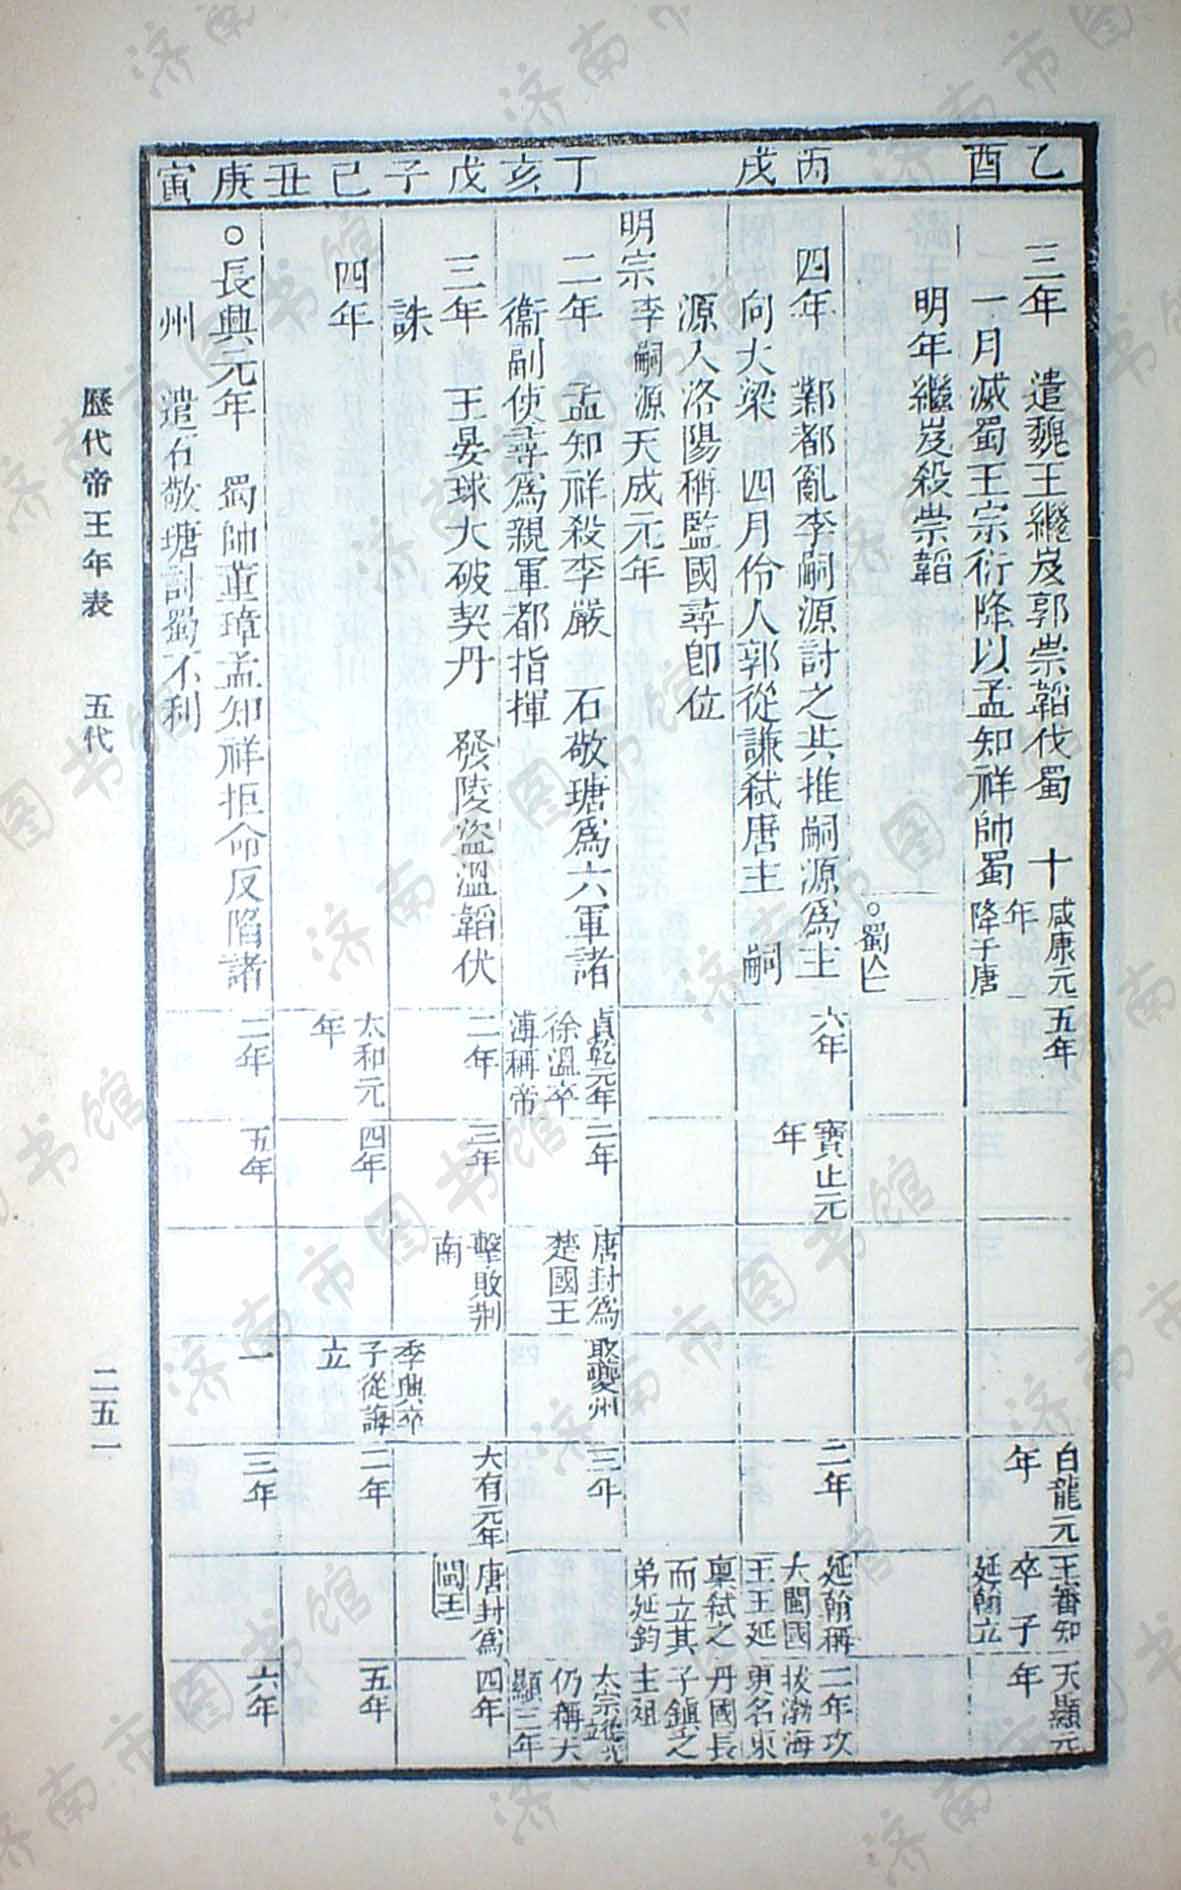 乙酉
三年　遣魏王繼岌郭崇韜伐蜀　十
一月滅蜀王宗衍降以孟知祥帥蜀
明年繼岌殺崇韜
咸康元
年
降于唐
○蜀亡
五年
白龍元
年
王審知
卒　子
延翰立
天顯元
年
丙戌
四年　鄴都亂李嗣源討之共推嗣源爲主
向大梁　四月伶人郭從謙弑唐主　嗣
源入洛陽稱監國尋卽位
明宗李嗣源天成元年
六年
寶正元
年
二年
延翰稱
大閩國
王王延
稟弑之
而立其
弟延鈞
二年攻
拔渤海
更名東
丹國長
子鎮之
主祖
丁亥
二年　孟知祥殺李嚴　石敬瑭爲六軍諸
衞副使尋爲親軍都指揮
貞乾元年
徐溫卒
溥稱帝
二年
唐封爲
楚國王
取夔州
三年
太宗德光
立
仍稱天
顯二年
戊子
三年　王晏球大破契丹　發陵盜溫韜伏
誅
二年
三年
擊敗荆
南
季興卒
大有元年
唐封爲
閩王
四年
己丑
四年
太和元
年
四年
子從誨
立
二年
五年
庚寅
○長興元年　蜀帥董璋孟知祥拒命反陷諸
州　遣石敬瑭討蜀不利
二年
五年
一
三年
六年
歷代帝王年表　五代
二五一
济南市图书馆